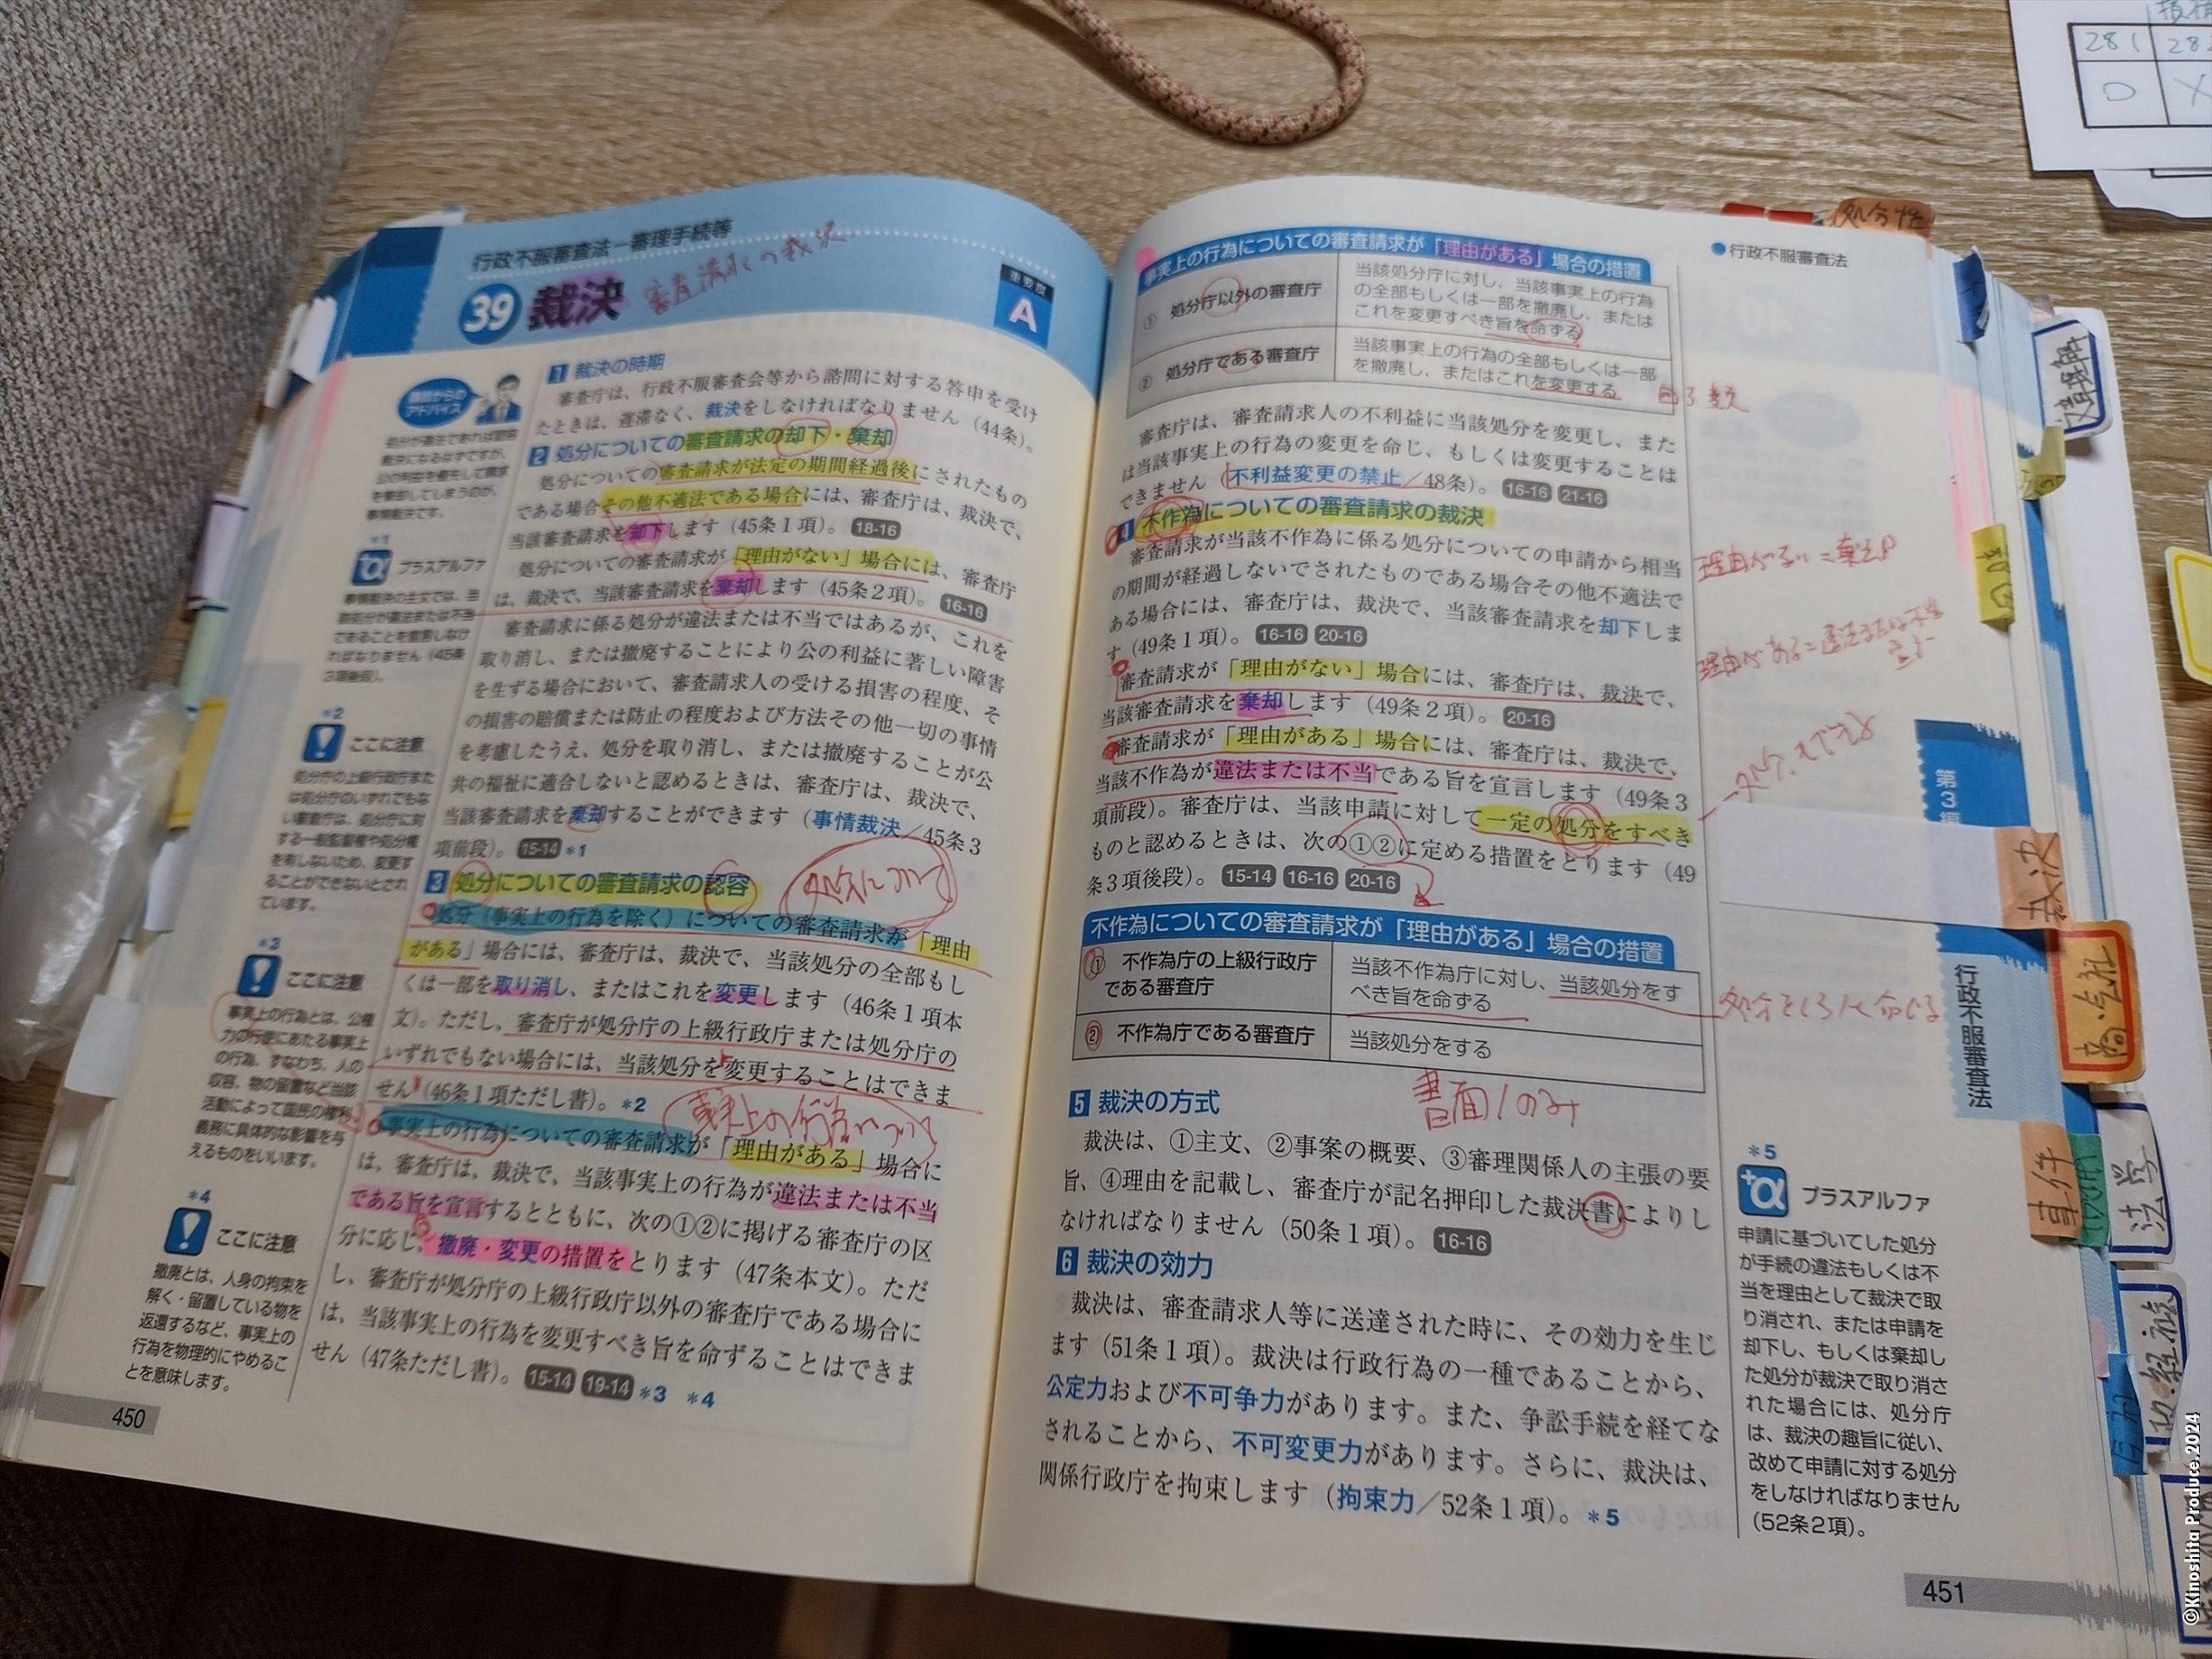 行政不服審査法－審理手続等
39 裁決 審査請求の裁決
重要度
A
講師からの
アドバイス
処分が違法であれば認容
裁決になるはずですが、
公の利益を優先して請求
を棄却してしまうのが、
事情裁決です。
*1
+α プラスアルファ
事情裁決の主文では、当
該処分が違法または不当
であることを宣言しなけ
ればなりません(45条
3項後段)。
*2
! ここに注意
処分庁の上級行政庁また
は処分庁のいずれでもな
い審査庁は、処分庁に対
する一般監督権や処分権
を有しないため、変更す
ることができないとされ
ています。
*3
! ここに注意
事実上の行為とは、公権
力の行使にあたる事実上
の行為、すなわち、人の
収容、物の留置など当該
活動によって国民の権利
義務に具体的な影響を与
えるものをいいます。
*4
! ここに注意
撤廃とは、人身の拘束を
解く・留置している物を
返還するなど、事実上の
行為を物理的にやめるこ
とを意味します。
1 裁決の時期
審査庁は、行政不服審査会等から諮問に対する答申を受け
たときは、遅滞なく、裁決をしなければなりません(44条)。
2 処分についての審査請求の却下・棄却
処分についての審査請求が法定の期間経過後にされたもの
である場合その他不適法である場合には、審査庁は、裁決で、
当該審査請求を却下します(45条1項)。 18-16
処分についての審査請求が「理由がない」場合には、審査庁
は、裁決で、当該審査請求を棄却します(45条2項)。 16-16
審査請求に係る処分が違法または不当ではあるが、これを
取り消し、または撤廃することにより公の利益に著しい障害
を生ずる場合において、審査請求人の受ける損害の程度、そ
の損害の賠償または防止の程度および方法その他一切の事情
を考慮したうえ、処分を取り消し、または撤廃することが公
共の福祉に適合しないと認めるときは、審査庁は、裁決で、
当該審査請求を棄却することができます(事情裁決/45条3
項前段)。 15-14 *1
3 処分についての審査請求の認容
処分について
処分(事実上の行為を除く)についての審査請求が「理由
がある」場合には、審査庁は、裁決で、当該処分の全部もし
くは一部を取り消し、またはこれを変更します(46条1項本
文)。ただし、審査庁が処分庁の上級行政庁または処分庁の
いずれでもない場合には、当該処分を変更することはできま
せん(46条1項ただし書)。 *2
事実上の行為について
事実上の行為についての審査請求が「理由がある」場合に
は、審査庁は、裁決で、当該事実上の行為が違法または不当
である旨を宣言するとともに、次の①②に掲げる審査庁の区
分に応じ、撤廃・変更の措置をとります(47条本文)。ただ
し、審査庁が処分庁の上級行政庁以外の審査庁である場合に
は、当該事実上の行為を変更すべき旨を命ずることはできま
せん(47条ただし書)。 15-14 19-14 *3 *4
450
●行政不服審査法
事実上の行為についての審査請求が「理由がある」場合の措置
① 処分庁以外の審査庁
当該処分庁に対し、当該事実上の行為
の全部もしくは一部を撤廃し、または
これを変更すべき旨を命ずる
② 処分庁である審査庁
当該事実上の行為の全部もしくは一部
を撤廃し、またはこれを変更する
審査庁は、審査請求人の不利益に当該処分を変更し、また
は当該事実上の行為の変更を命じ、もしくは変更することは
できません(不利益変更の禁止/48条)。 16-16 21-16
4 不作為についての審査請求の裁決
審査請求が当該不作為に係る処分についての申請から相当
の期間が経過しないでされたものである場合その他不適法で
ある場合には、審査庁は、裁決で、当該審査請求を却下しま
す(49条1項)。 16-16 20-16
審査請求が「理由がない」場合には、審査庁は、裁決で、
当該審査請求を棄却します(49条2項)。 20-16
審査請求が「理由がある」場合には、審査庁は、裁決で、
当該不作為が違法または不当である旨を宣言します(49条3
項前段)。審査庁は、当該申請に対して一定の処分をすべき
ものと認めるときは、次の①②に定める措置をとります(49
条3項後段)。 15-14 16-16 20-16
理由がない=棄却
理由がある=違法または不当
不作為についての審査請求が「理由がある」場合の措置
① 不作為庁の上級行政庁
である審査庁
当該不作為庁に対し、当該処分をす
べき旨を命ずる
② 不作為庁である審査庁
当該処分をする
処分をしろと命じる
5 裁決の方式
書面のみ
裁決は、①主文、②事案の概要、③審理関係人の主張の要
旨、④理由を記載し、審査庁が記名押印した裁決書によりし
なければなりません(50条1項)。 16-16
6 裁決の効力
裁決は、審査請求人等に送達された時に、その効力を生じ
ます(51条1項)。裁決は行政行為の一種であることから、
公定力および不可争力があります。また、争訟手続を経てな
されることから、不可変更力があります。さらに、裁決は、
関係行政庁を拘束します(拘束力/52条1項)。 *5
*5
+α プラスアルファ
申請に基づいてした処分
が手続の違法もしくは不
当を理由として裁決で取
り消され、または申請を
却下し、もしくは棄却し
た処分が裁決で取り消さ
れた場合には、処分庁
は、裁決の趣旨に従い、
改めて申請に対する処分
をしなければなりません
(52条2項)。
451
第3編
行政不服審査法
処分性
裁決
商・会社
事件
法学
281
©Kinoshita Produce.2024